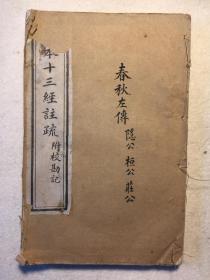 春秋左傳 隱公 桓公 莊公
本十三經註疏 附校勘記